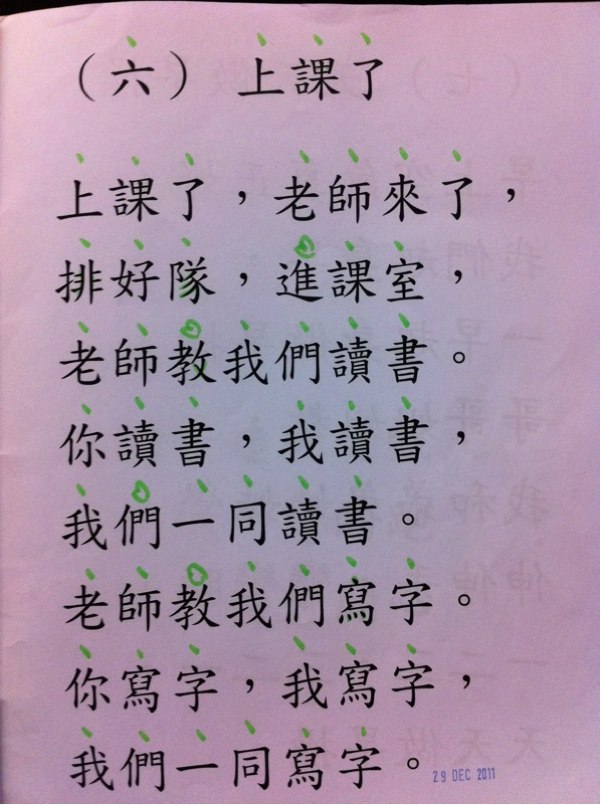 （六） 上課了
上課了，老師來了，
排好隊，進課室，
老師教我們讀書。
你讀書，我讀書，
我們一同讀書。
老師教我們寫字。
你寫字，我寫字，
我們一同寫字。
29 DEC 2011